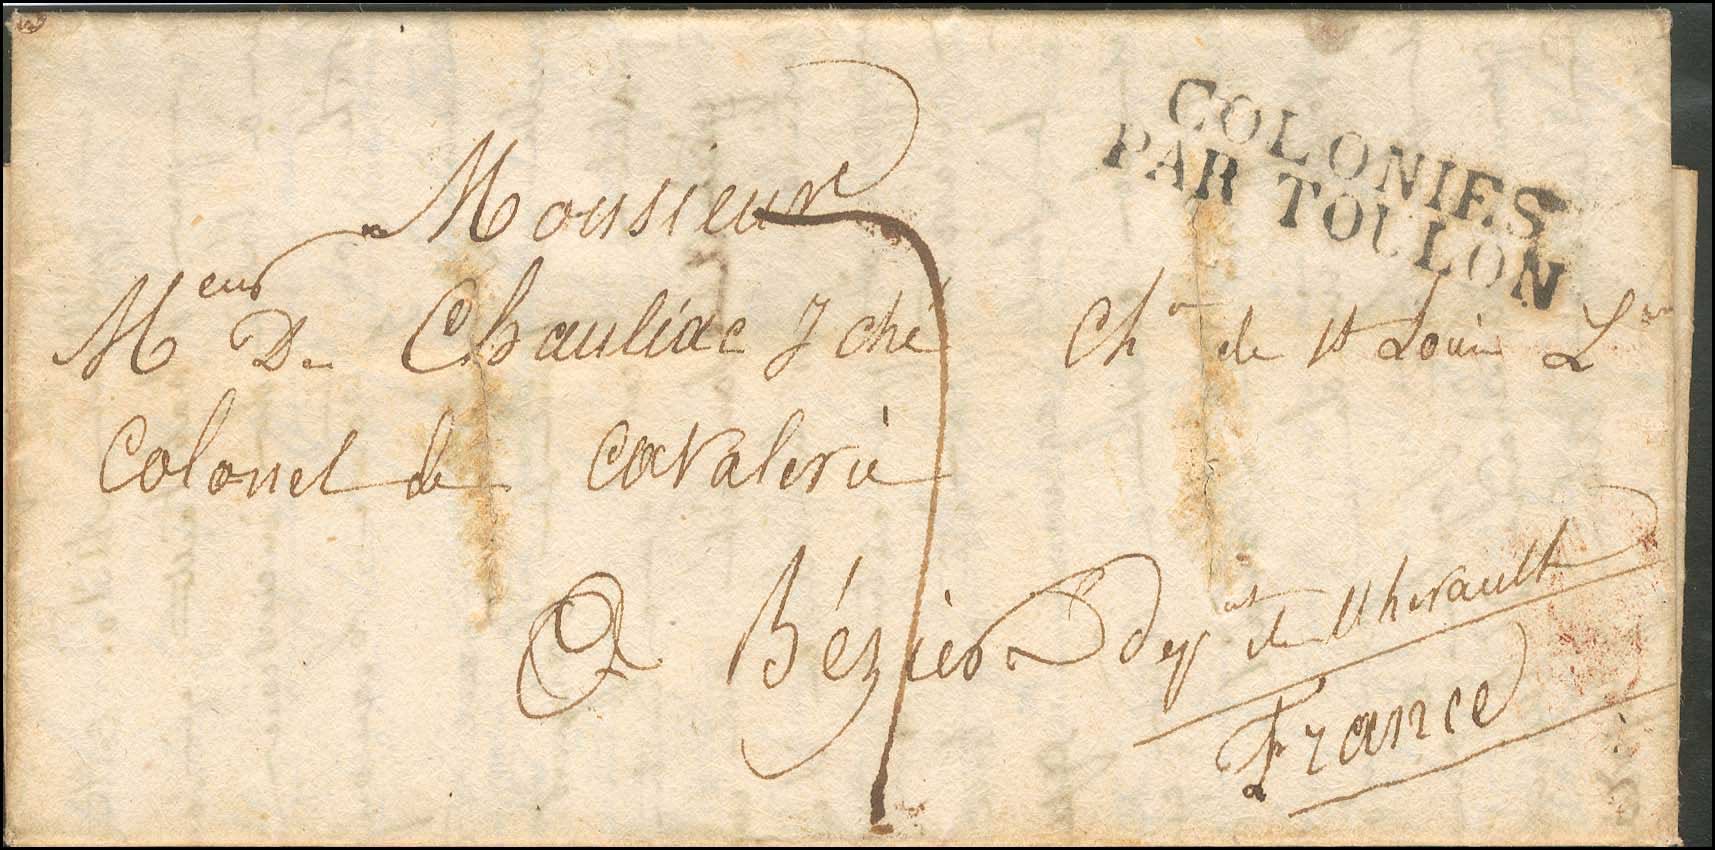 COLONIES
PAR TOULON
Monsieur
Meur De Chauliac Ché Chr de St Louis
Colonel de Cavalerie
A Béziers depnt de l'herault
France
7